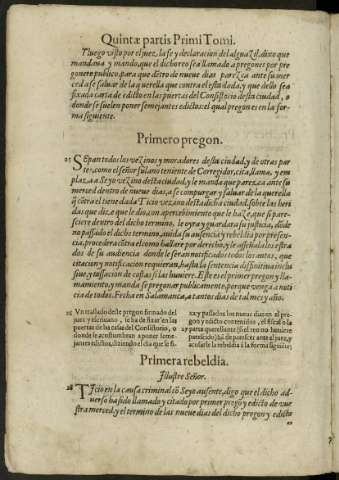 Quintæ partis Primi Tomi.
Y luego visto por el juez, la fe y declaracion del alguazil, dixo que
mandaua y mando, que el dicho reo sea llamado a pregones por pre
gonero publico, para que dētro de nueue dias parezca ante su mer
ced a se saluar de la querella que contra el esta dada, y que dello sea
fixada carta de edicto en las puertas del Consistorio desta ciudad, o
donde se suelen poner semejantes edictos: el qual pregon es en la for
ma siguiente.
Primero pregon.
25 Sepan todos los vezinos y moradores desta ciudad, y de otras par
tes, como el señor fulano teniente de Corregidor, cita, llama, y em
plaza a Seyo vezino desta ciudad, y le manda que parezca ante su
merced dentro de nueue dias, a se compurgar y saluar de la querella
q̄ cōtra el tiene dada Ticio vezino desta dicha ciudad, sobre las heri
das que diz que le dio, con apercebimiento que le haze, que si pare-
sciere dentro del dicho termino, le oyra y guardara su justicia, dōde
no passado el dicho termino, auida su ausencia y rebeldia por presen-
cia, procedera cōtra el como hallare por derecho, y le asseñala los estra
dos de su audiencia donde le seran notificados todos los autos, que
citacion y notificacion requieran, hasta la sentencia diffinitiua inclu
siue, y tassacion de costas si las huuiere. Este es el primer pregon y lla-
mamiento, y manda se pregonar publicamente, porque venga a noti
cia de todos. Fecha en Salamanca, a tantos dias de tal mes y año.
26 Un traslado deste pregon firmado del
juez y escriuano, se ha de fixar en las
puertas de las casas del Consistorio, o
donde se acostumbran a poner seme-
jantes edictos, diziendo el dia que se fi-
xa: y passados los nueue dias en el pre
gon y edicto contenidos, el fiscal o la
parte querellante (si el reo no huuiere
parescido) ha de parescer ante el juez, y
acusarle la rebeldia en la forma siguiente;
Primera rebeldia.
Illustre Señor.
28 Ticio en la causa criminal cō Seyo ausente, digo que el dicho ad-
uerso ha sido llamado y citado por primer pregon y edicto de vue
stra merced, y el termino de las nueue dias del dicho pregon y edicto